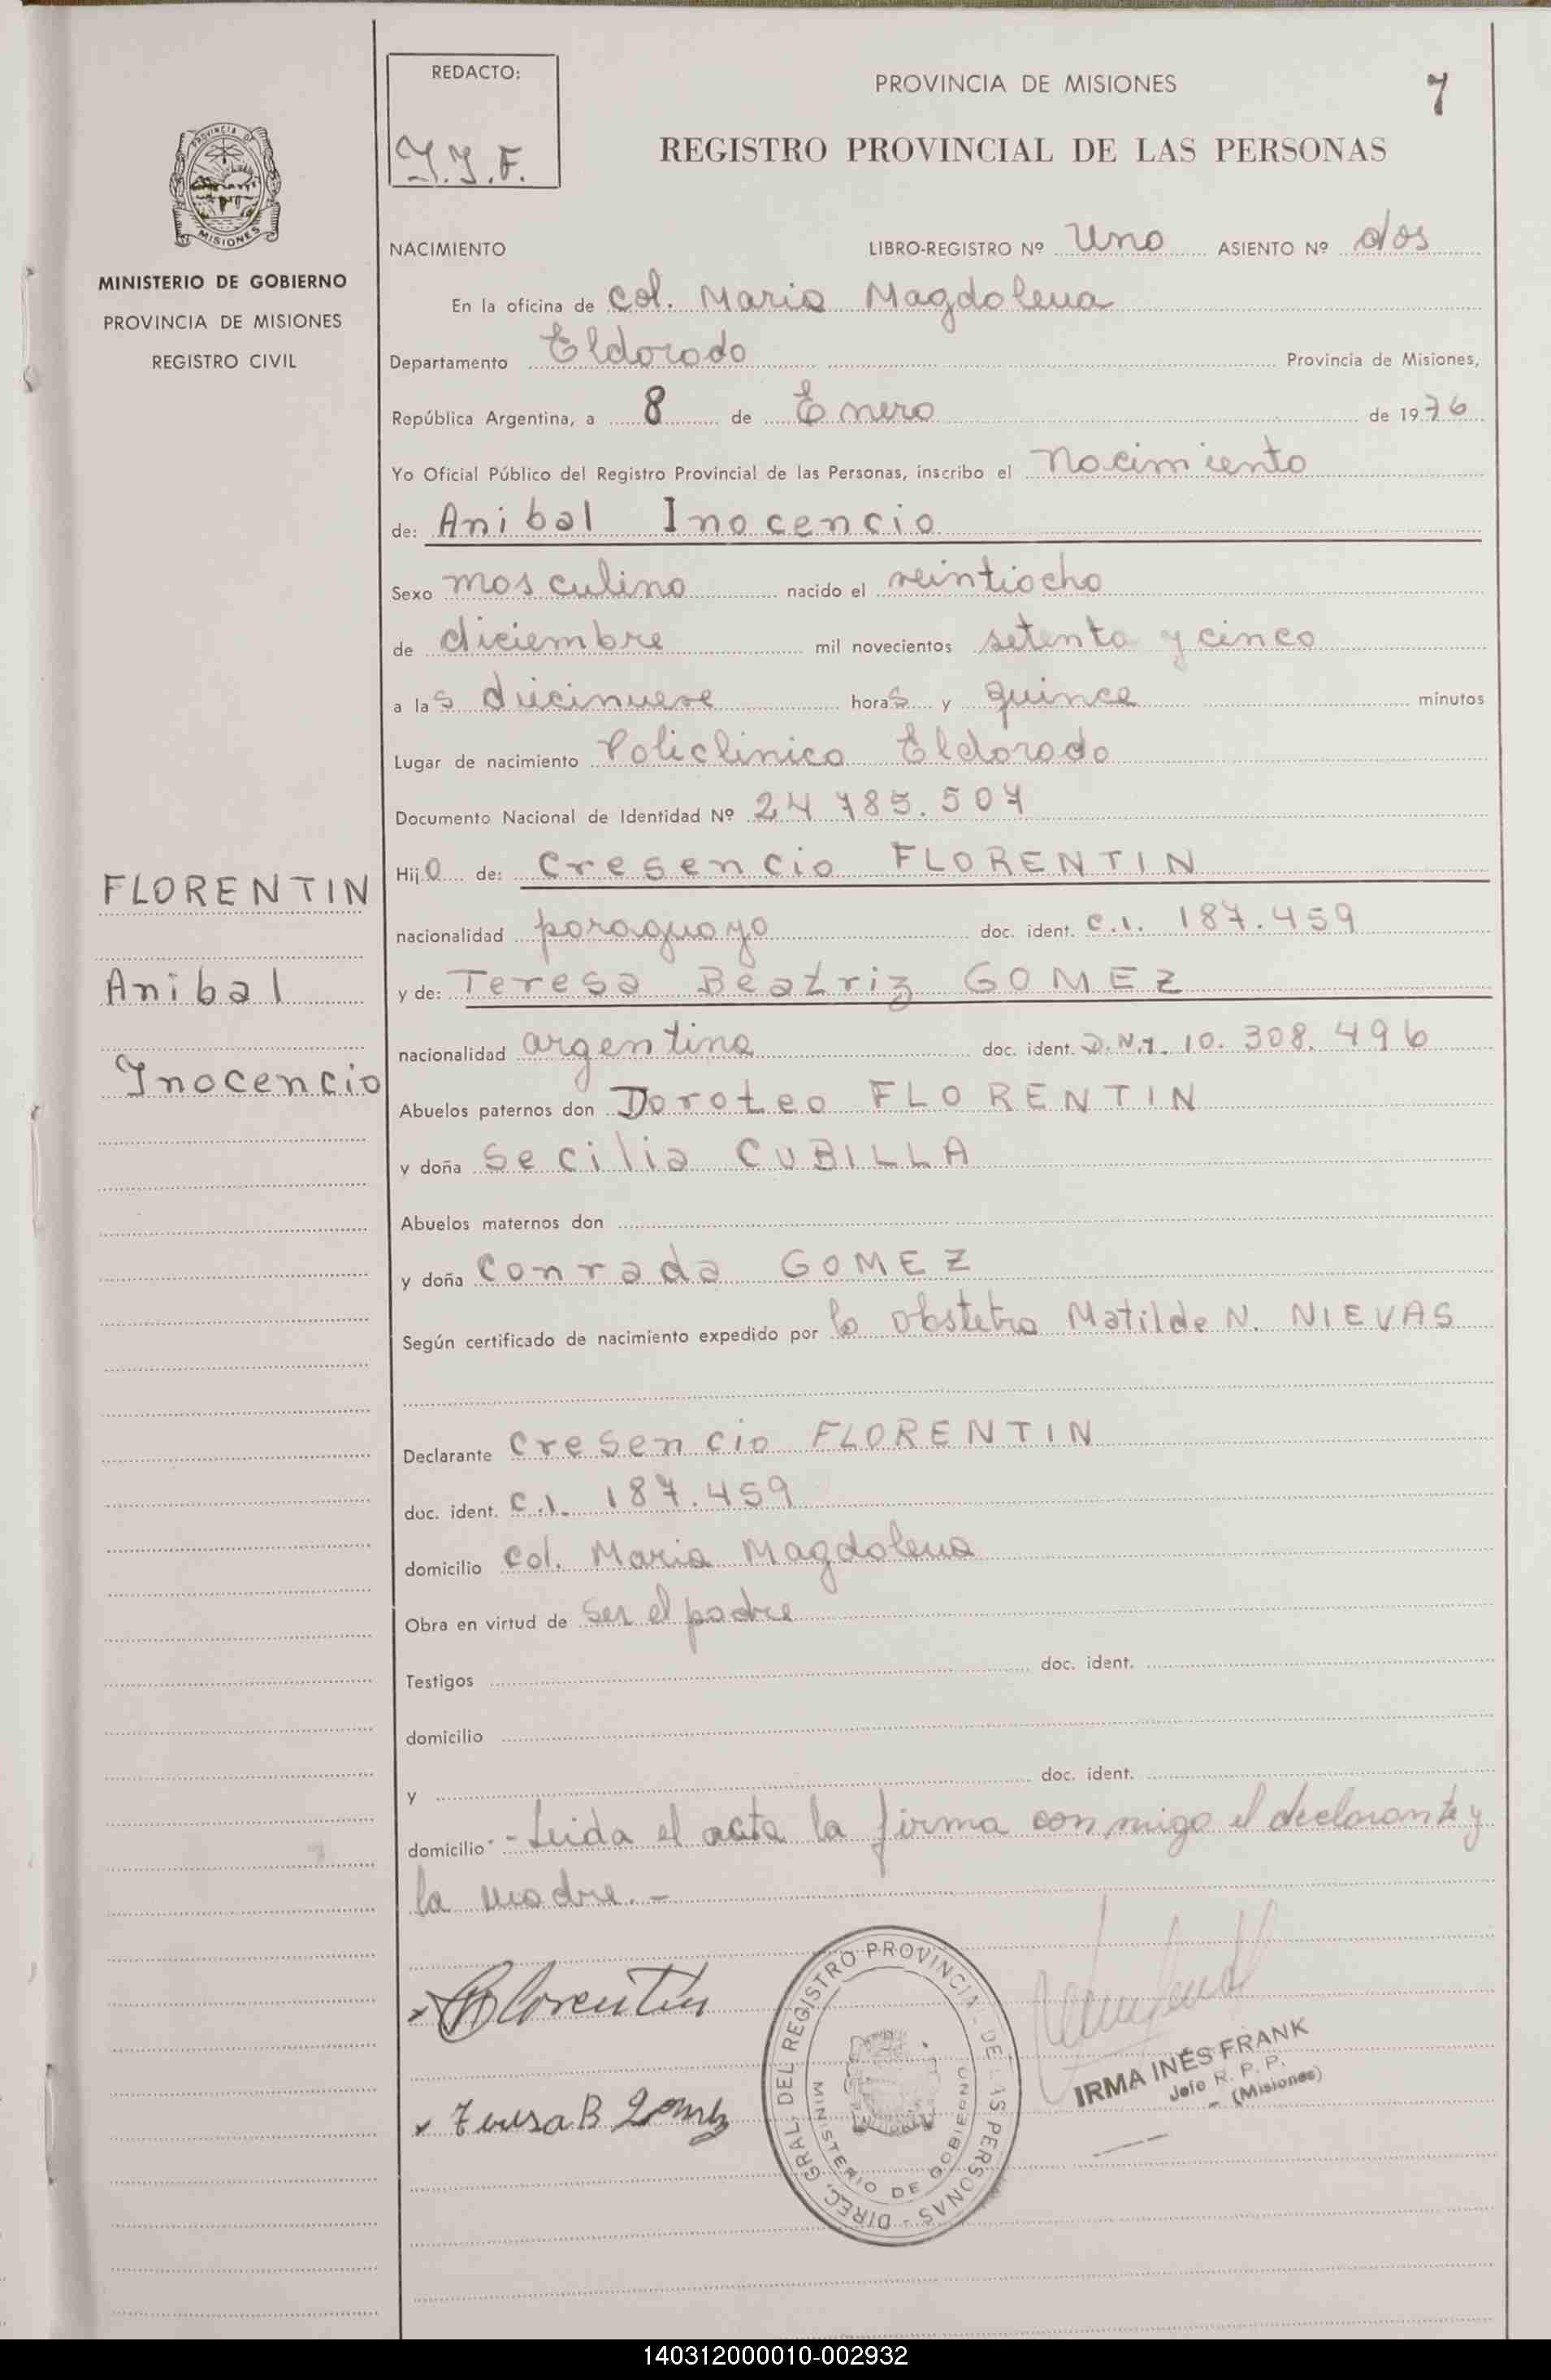 REDACTO:
I.I.F.
PROVINCIA DE MISIONES
7
REGISTRO PROVINCIAL DE LAS PERSONAS
PROVINCIA DE
MISIONES
MINISTERIO DE GOBIERNO
PROVINCIA DE MISIONES
REGISTRO CIVIL
NACIMIENTO LIBRO-REGISTRO Nº Uno ASIENTO Nº dos
En la oficina de Col. Maria Magdalena
Departamento Eldorado Provincia de Misiones,
República Argentina, a 8 de Enero de 1976
Yo Oficial Público del Registro Provincial de las Personas, inscribo el nacimiento
de: Anibal Inocencio
Sexo masculino nacido el veintiocho
de diciembre mil novecientos setenta y cinco
a las diecinueve horas y quince minutos
Lugar de nacimiento Policlinico Eldorado
Documento Nacional de Identidad Nº 24 785.507
Hijo de: Cresencio FLORENTIN
nacionalidad paraguayo doc. ident. C.I. 187.459
y de: Teresa Beatriz GOMEZ
nacionalidad argentina doc. ident. D.N.I. 10.308.496
Abuelos paternos don Doroteo FLORENTIN
y doña Secilia CUBILLA
Abuelos maternos don
y doña Conrada GOMEZ
Según certificado de nacimiento expedido por la obstetra Matilde N. NIEVAS
Declarante Cresencio FLORENTIN
doc. ident. C.I. 187.459
domicilio Col. Maria Magdalena
Obra en virtud de ser el padre
Testigos doc. ident.
domicilio
y doc. ident.
domicilio - Leida el acta la firma conmigo el declarante y
la madre.-
FLORENTIN
Anibal
Inocencio
Florentin
Teresa B Gomez
DIREC. GRAL. DEL REGISTRO PROVINCIAL DE LAS PERSONAS -
MINISTERIO DE GOBIERNO
IRMA INÉS FRANK
Jefe R. P. P.
- (Misiones)
140312000010-002932